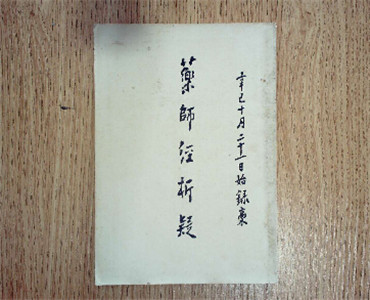 辛巳十月二十一日始録稾
藥師經析疑